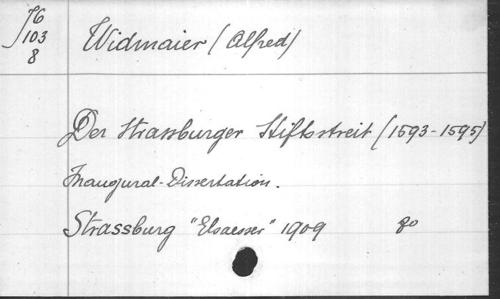 J6
103
8
Widmaier (Alfred)
Der Strassburger Stiftsstreit (1593-1595)
Inaugural-Dissertation.
Strassburg "Elsaesser" 1909 8o